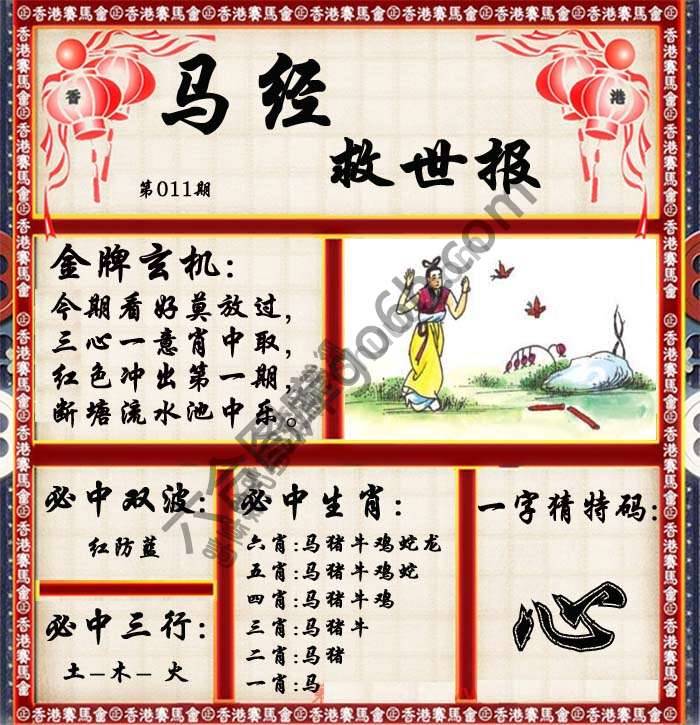 香港賽馬會
香
港
马经
救世报
第011期
金牌玄机:
今期看好莫放过,
三心一意肖中取,
红色冲出第一期,
断塘流水池中乐。
必中双波:
红防蓝
必中三行:
土-木-火
必中生肖:
六肖:马猪牛鸡蛇龙
五肖:马猪牛鸡蛇
四肖:马猪牛鸡
三肖:马猪牛
二肖:马猪
一肖:马
一字猜特码:
心